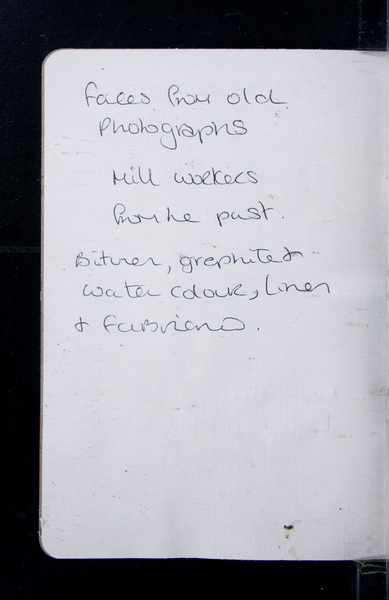 Faces from old
Photographs
Mill workers
from the past.
Bitumen, graphite &
water colour, linen
& Fabriano.